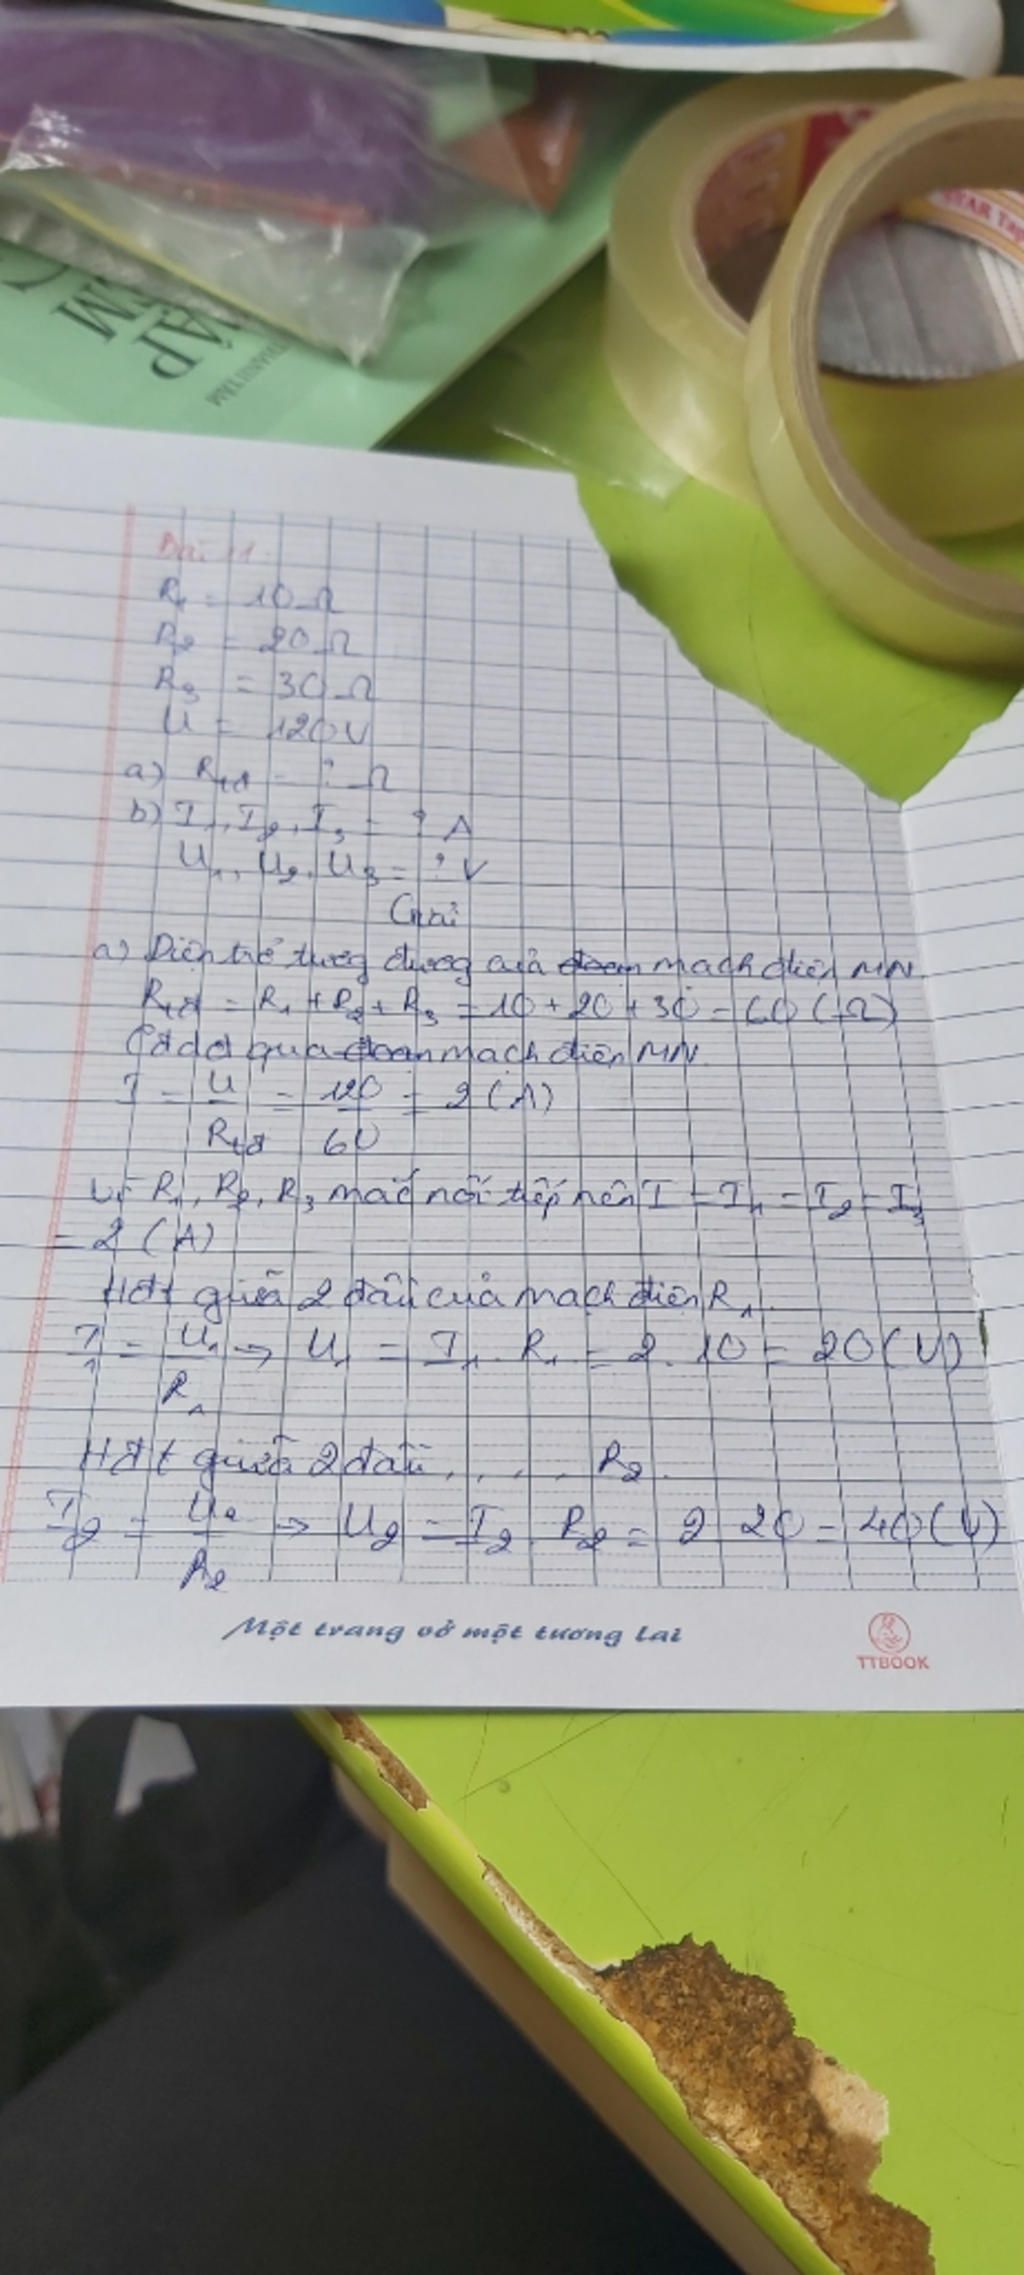 STAR Tape
ẬP
THANH TÂM
Bài 11.
R₁ = 10 Ω
R₂ = 20 Ω
R₃ = 30 Ω
U = 120 V
a) Rtđ = ? Ω
b) I₁, I₂, I₃ = ? A
U₁, U₂, U₃ = ? V
Giải
a) Điện trở tương đương của mạch điện MN
Rtđ = R₁ + R₂ + R₃ = 10 + 20 + 30 = 60 (Ω)
Cđdđ qua mạch điện MN
I = U/Rtđ = 120/60 = 2 (A)
Vì R₁, R₂, R₃ mắc nối tiếp nên I = I₁ = I₂ = I₃
= 2 (A)
Hđt giữa 2 đầu của mạch điện R₁
I₁ = U₁/R₁ → U₁ = I₁ . R₁ = 2 . 10 = 20 (V)
Hđt giữa 2 đầu . . . . R₂
I₂ = U₂/R₂ → U₂ = I₂ . R₂ = 2 . 20 = 40 (V)
Một trang vở một tương lai
TTBOOK